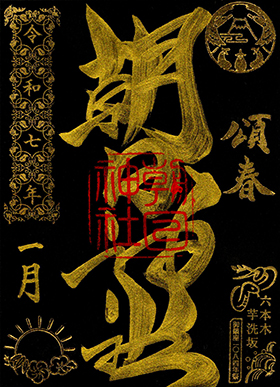 頌春
六本木
芋洗坂
朝日神社
朝日神社
令和七年
一月